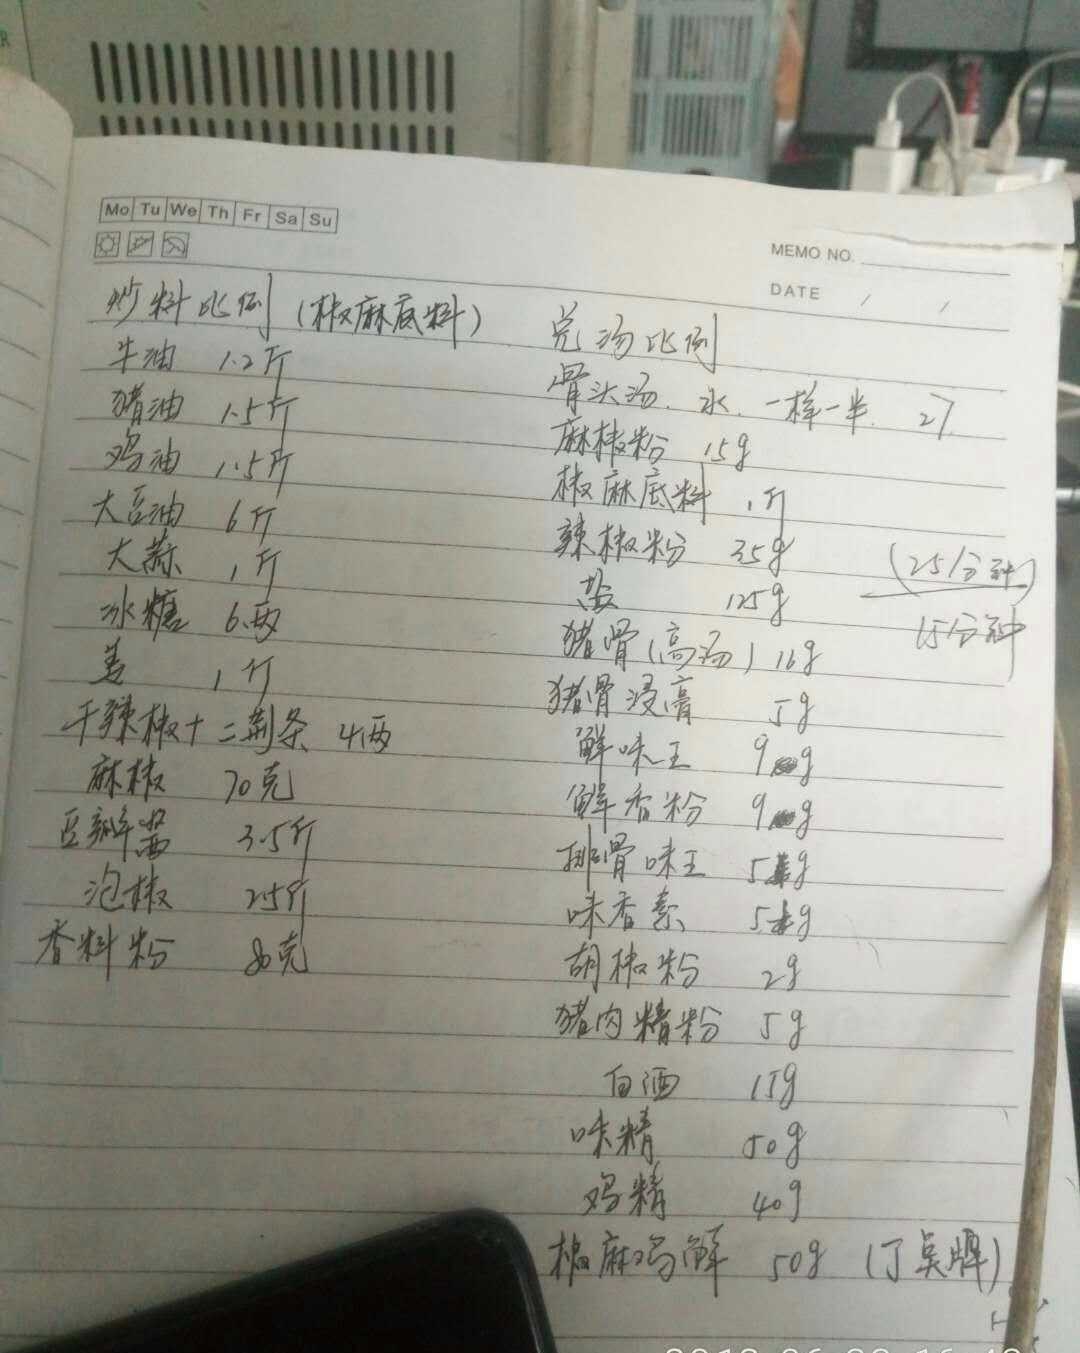 Mo Tu We Th Fr Sa Su
MEMO NO.
DATE / /
炒料比例(椒麻底料)
牛油 1.2斤
猪油 1.5斤
鸡油 1.5斤
大豆油 6斤
大蒜 1斤
冰糖 6两
姜 1斤
干辣椒十二荆条 4两
麻椒 70克
豆瓣酱 3.5斤
泡椒 2.5斤
香料粉 80克
兑汤比例
骨头汤、水、一样一半.
麻椒粉 15g
椒麻底料 1斤
辣椒粉 35g
(25分钟)
盐 125g
15分钟
猪骨(高汤) 16g
猪骨浸膏 5g
鲜味王 9g
鲜香粉 9g
排骨味王 5g
味香素 5g
胡椒粉 2g
猪肉精粉 5g
白酒 15g
味精 50g
鸡精 40g
椒麻鸡鲜 50g (丁点牌)